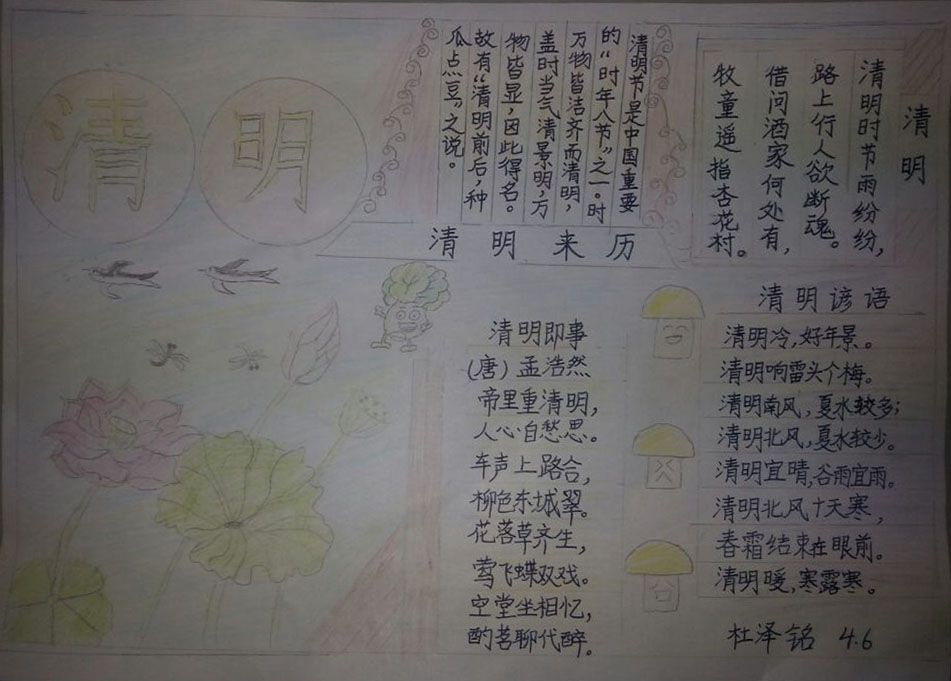 清明
清明节是中国重要
的“时年八节”之一。时
万物皆洁齐而清明，
盖时当气清景明，万
物皆显，因此得名。
故有“清明前后，种
瓜点豆”之说。
清明来历
清明
清明时节雨纷纷，
路上行人欲断魂。
借问酒家何处有，
牧童遥指杏花村。
清明即事
(唐) 孟浩然
帝里重清明，
人心自愁思。
车声上路合，
柳色东城翠。
花落草齐生，
莺飞蝶双戏。
空堂坐相忆，
酌茗聊代醉。
清明谚语
清明冷，好年景。
清明响雷头个梅。
清明南风，夏水较多；
清明北风，夏水较少。
清明宜晴，谷雨宜雨。
清明北风十天寒，
春霜结束在眼前。
清明暖，寒露寒。
杜泽铭 4.6